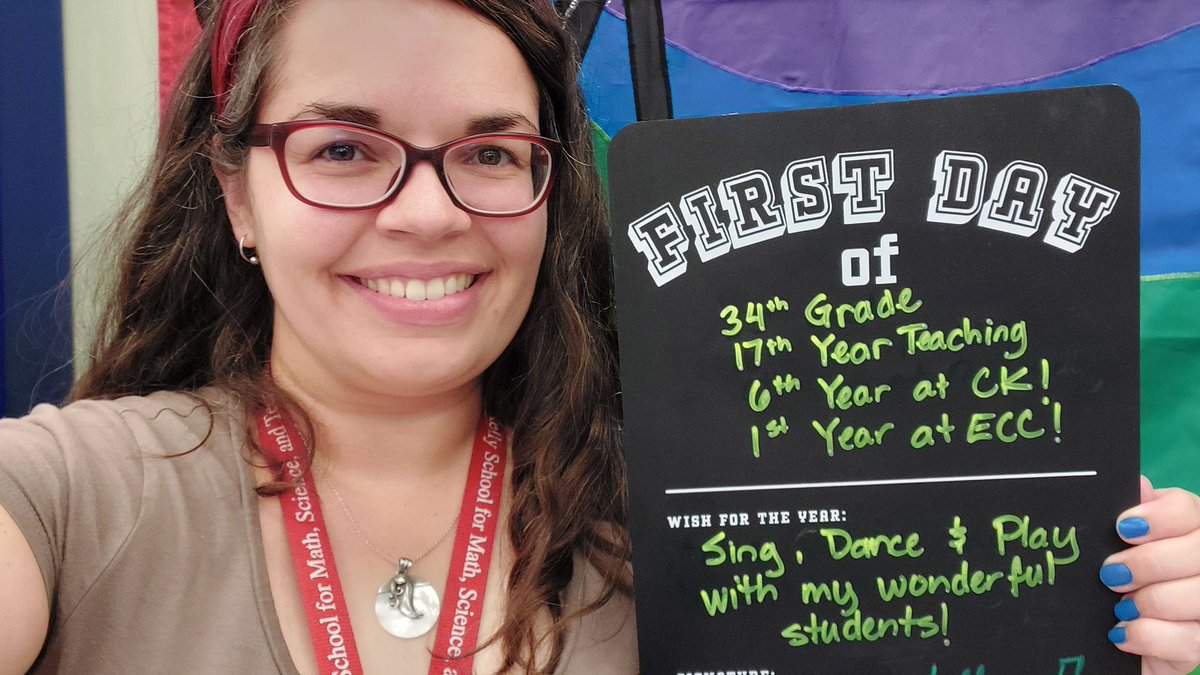 FIRST DAY
of
34th Grade
17th Year Teaching
6th Year at CK!
1st Year at ECC!
WISH FOR THE YEAR:
Sing, Dance & Play
with my wonderful
students!
SIGNATURE:
School for Math, Science, and Te
elly School for Math, Science, a